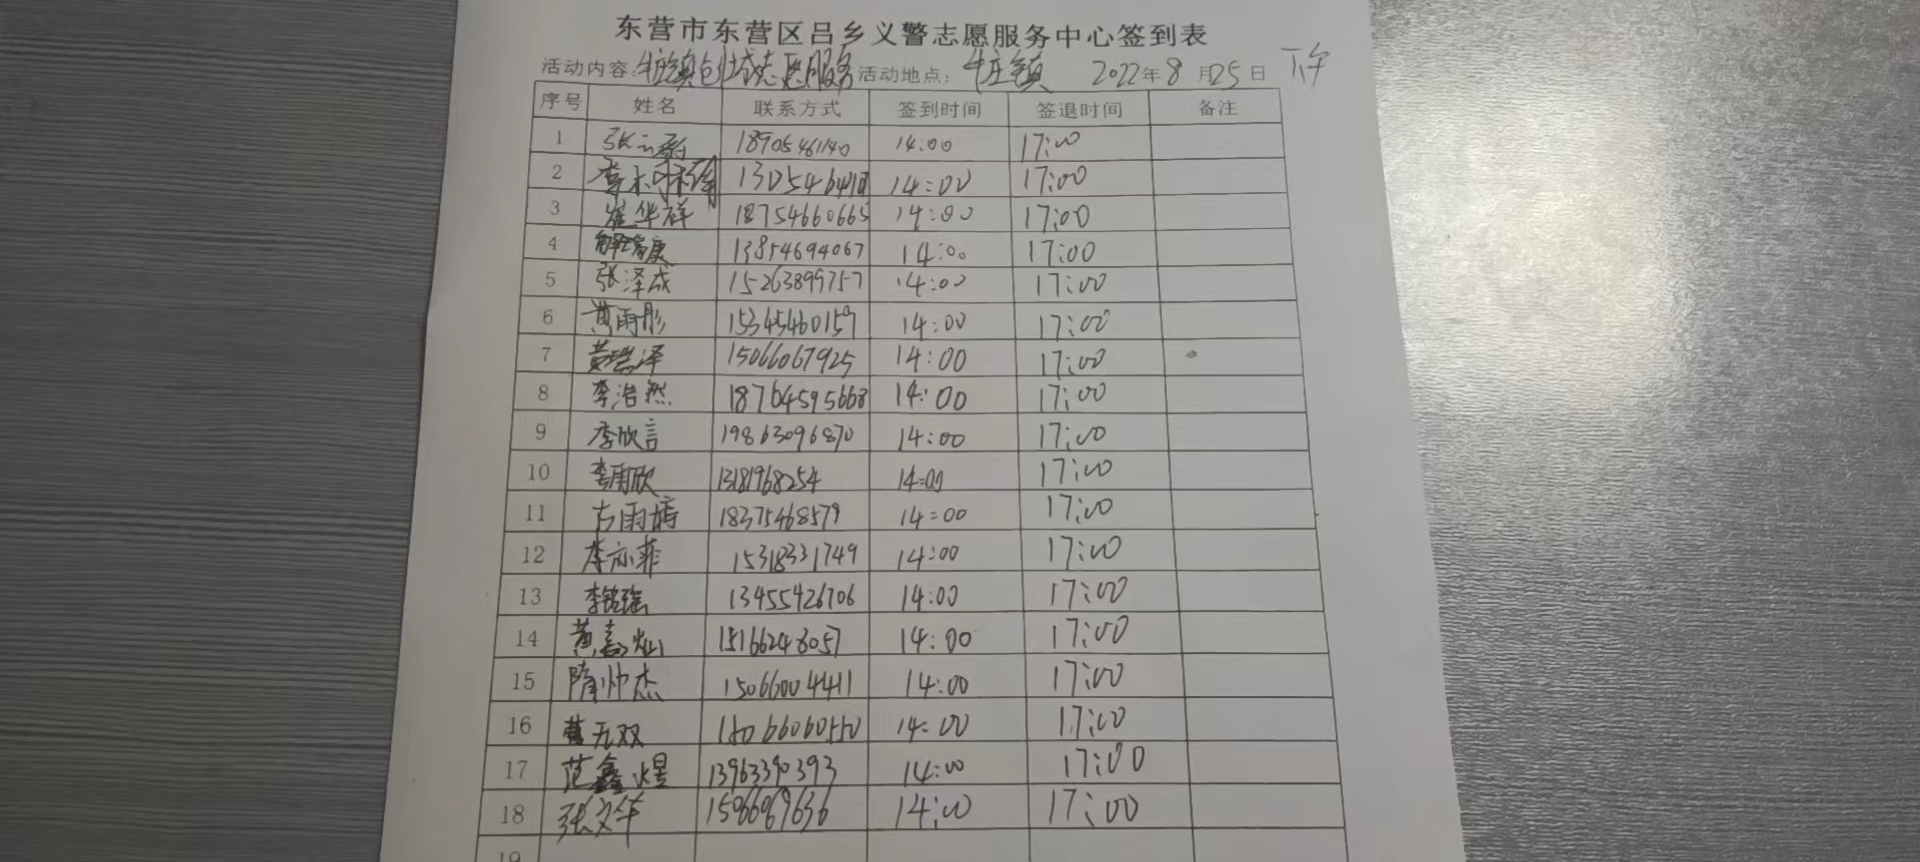 东营市东营区吕乡义警志愿服务中心签到表
活动内容：牛庄镇创城志愿服务 活动地点：牛庄镇 2022年8月25日 下午
序号 姓名 联系方式 签到时间 签退时间 备注
1 张 18905461140 14:00 17:00
2 14:00 17:00
3 崔华祥 18754660665 14:00 17:00
4 解瑞康 13854694067 14:00 17:00
5 张泽成 15263899757 14:00 17:00
6 黄雨彤 15345460159 14:00 17:00
7 黄瑞泽 15066067925 14:00 17:00
8 李浩然 18764595668 14:00 17:00
9 李欣言 19863096870 14:00 17:00
10 李雨欣 13181968254 14:00 17:00
11 雨婷 18375468579 14:00 17:00
12 李亦菲 15318331749 14:00 17:00
13 李铭瑶 13455426706 14:00 17:00
14 黄嘉灿 15166248057 14:00 17:00
15 隋帅杰 15066004411 14:00 17:00
16 无双 14:00 17:00
17 范鑫煜 13963390393 14:00 17:00
18 张文华 15066069636 14:00 17:00
19